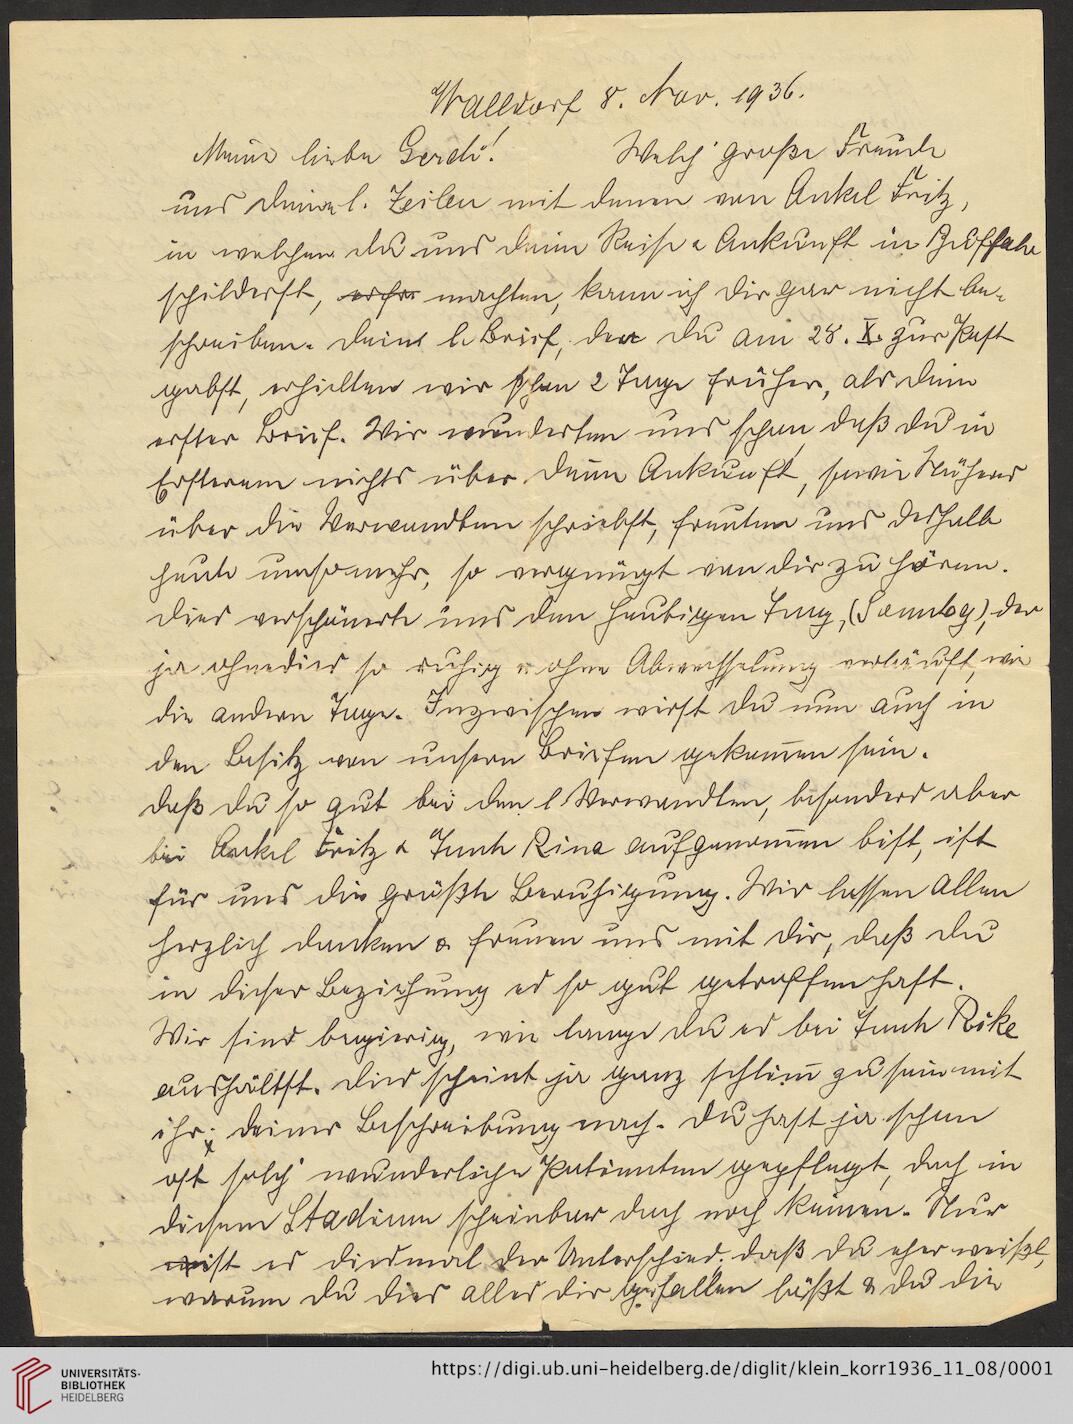 Walldorf 8. Nov. 1936.
Meine liebe Gerdi! Welch' große Freude
uns deine l. Zeilen mit denen von Onkel Fritz,
in welchen du uns deine Reise & Ankunft in Buffalo
schilderst, machten, kann ich dir gar nicht be-
schreiben. Deinen l. Brief, den du am 28. X. zur Post
gabst, erhielten wir schon 2 Tage früher, als dein
erster Brief. Wir wunderten uns schon, daß du in
Ersterem nichts über deine Ankunft, sowie Näheres
über die Verwandten schriebst, freuten uns deshalb
heute umsomehr, so vergnügt von dir zu hören.
Dies verschönerte uns den heutigen Tag, (Sonntag), der
ja ohnedies so ruhig u. ohne Abwechselung verläuft, wie
die andern Tage. Inzwischen wirst du nun auch in
den Besitz von unsern Briefen gekom̄en sein.
Daß du so gut bei den l. Verwandten, besonders aber
bei Onkel Fritz & Tante Rina aufgenom̄en bist, ist
für uns die größte Beruhigung. Wir lassen Allen
herzlich danken & freuen uns mit dir, daß du
in dieser Beziehung es so gut getroffen hast.
Wir sind begierig, wie lange du es bei Tante Rike
aushältst. Dies scheint ja ganz schlim̄ zu sein mit
ihr, deiner Beschreibung nach. Du hast ja schon
oft solch' wunderliche Patienten gepflegt, doch in
diesem Stadium scheinbar doch noch keinen. Nur
ist es diesmal der Unterschied, daß du eher weißt,
warum du dies alles dir gefallen läßt & du die
UNIVERSITÄTS-
BIBLIOTHEK
HEIDELBERG
https://digi.ub.uni-heidelberg.de/diglit/klein_korr1936_11_08/0001